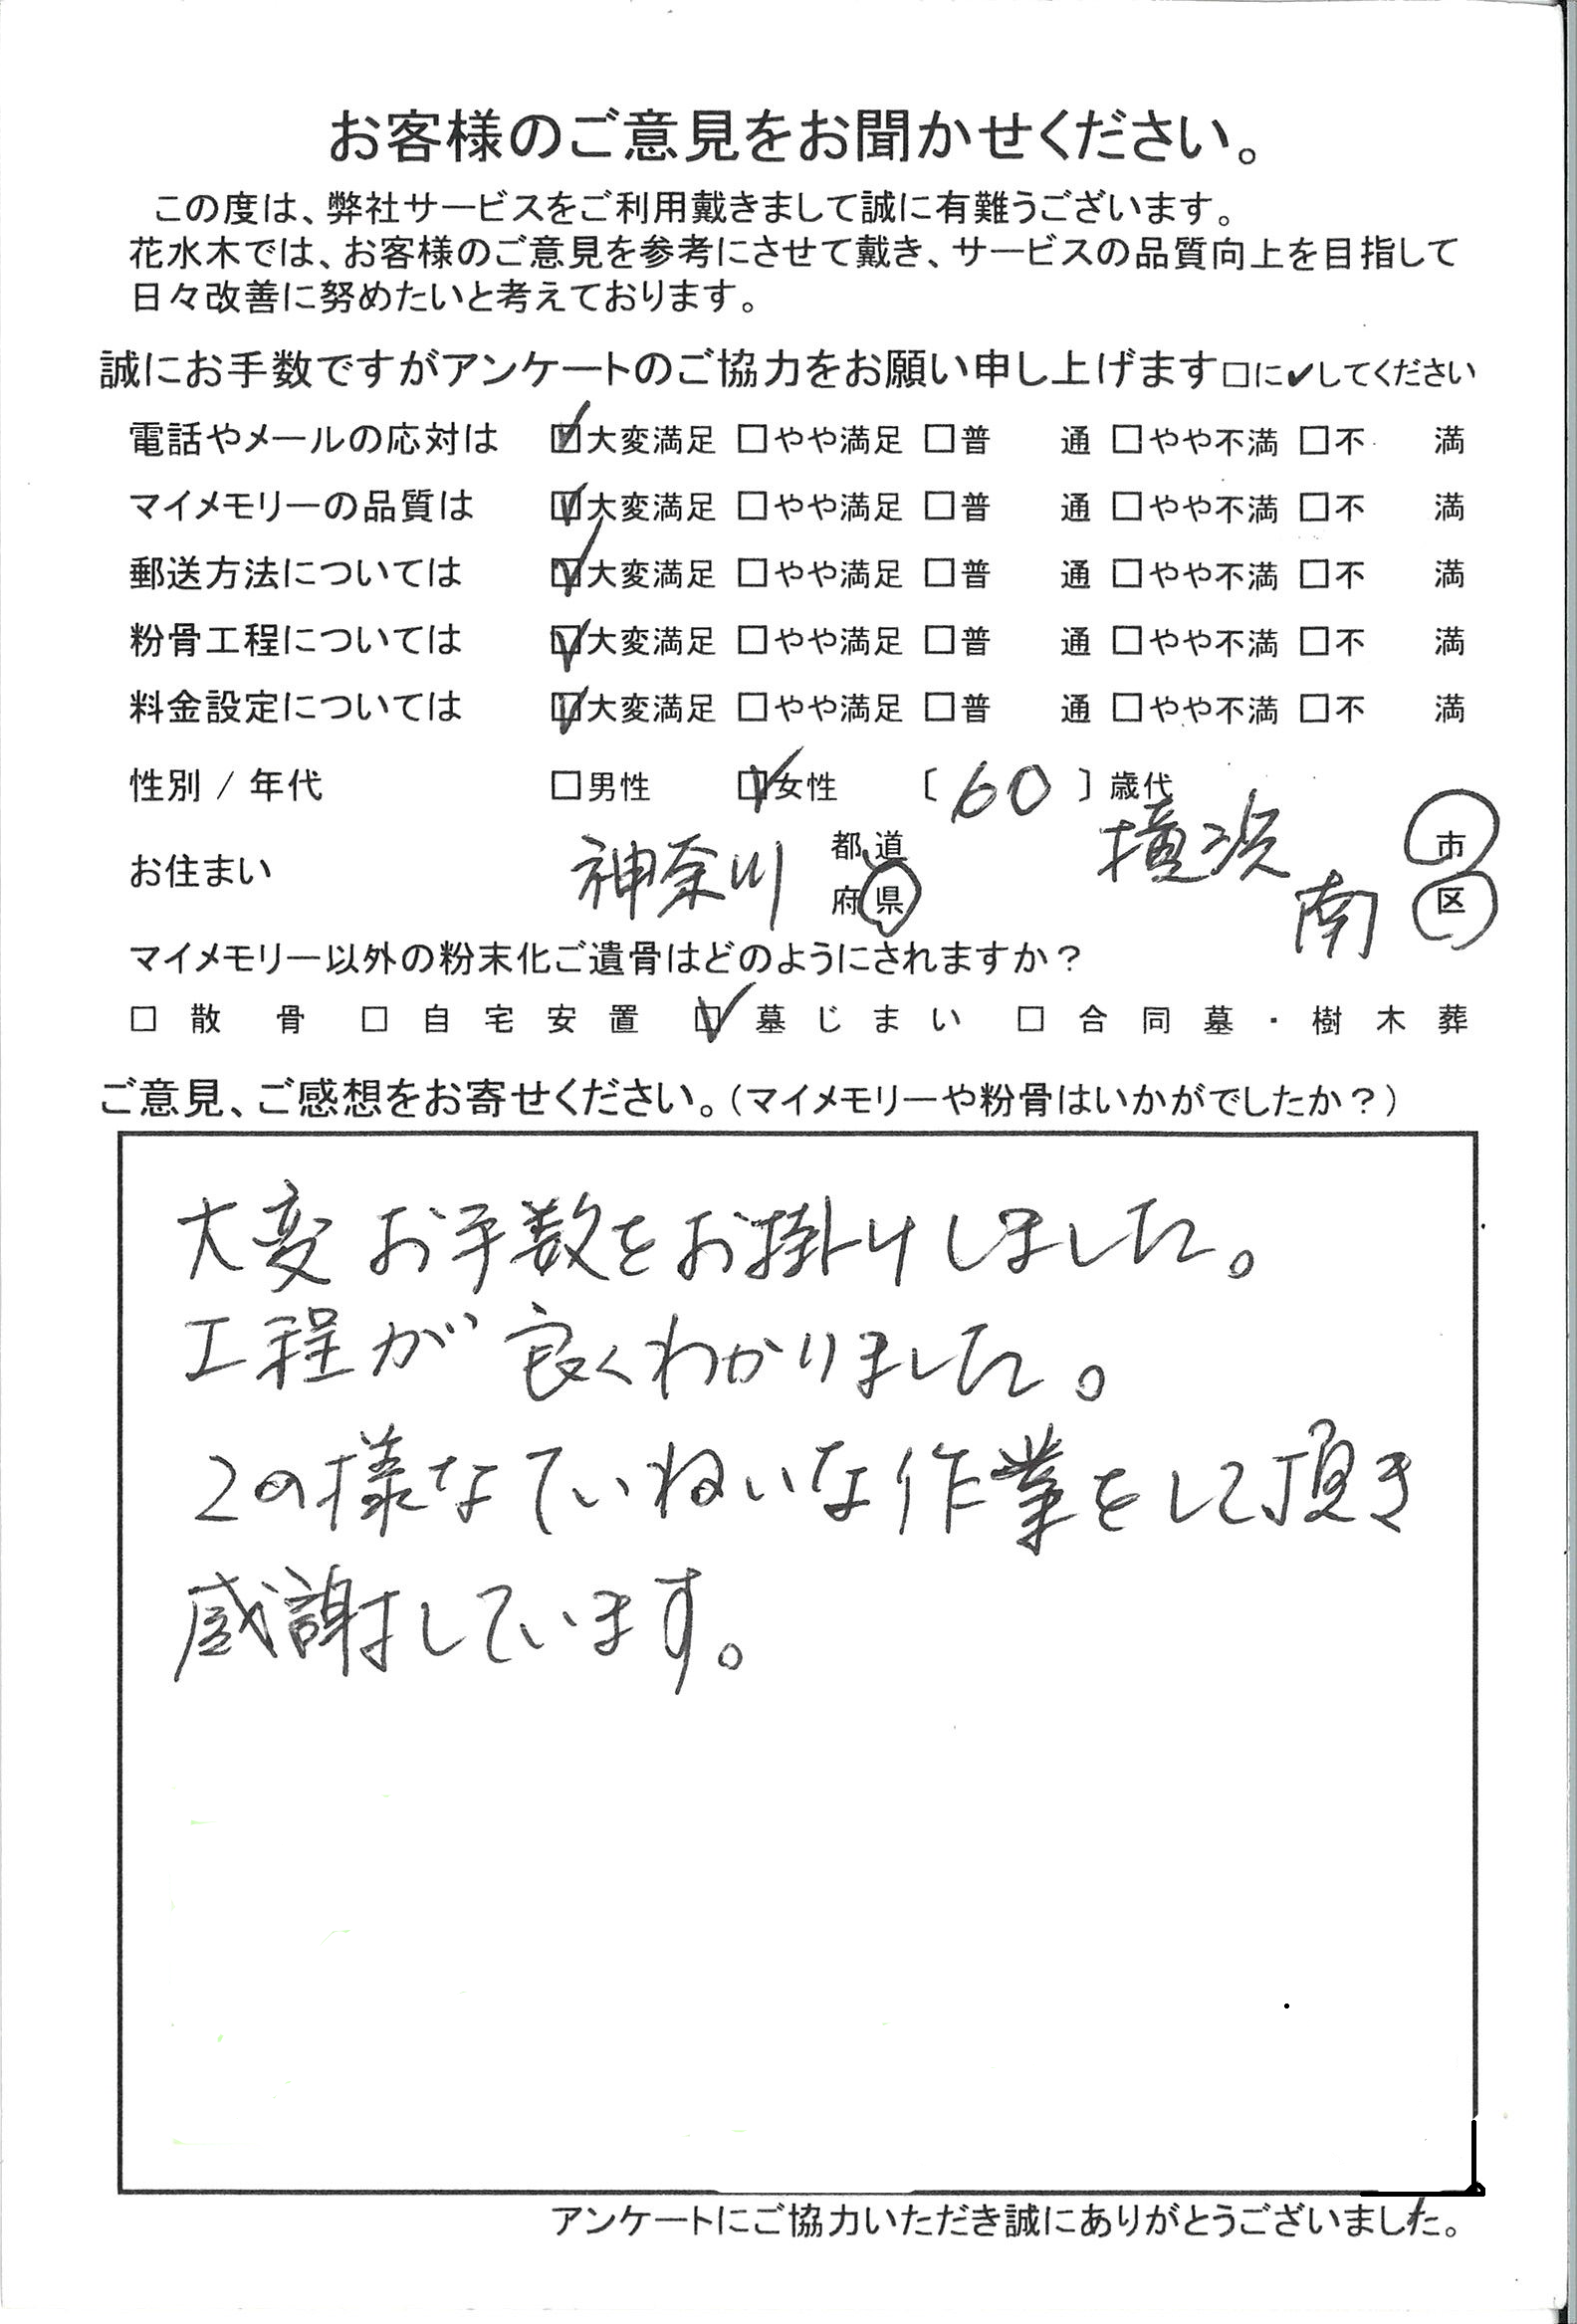 お客様のご意見をお聞かせください。
この度は、弊社サービスをご利用戴きまして誠に有難うございます。
花水木では、お客様のご意見を参考にさせて戴き、サービスの品質向上を目指して
日々改善に努めたいと考えております。
誠にお手数ですがアンケートのご協力をお願い申し上げます□に✔してください
電話やメールの応対は ☑大変満足 □やや満足 □普 通 □やや不満 □不 満
マイメモリーの品質は ☑大変満足 □やや満足 □普 通 □やや不満 □不 満
郵送方法については ☑大変満足 □やや満足 □普 通 □やや不満 □不 満
粉骨工程については ☑大変満足 □やや満足 □普 通 □やや不満 □不 満
料金設定については ☑大変満足 □やや満足 □普 通 □やや不満 □不 満
性別 / 年代 □男性 ☑女性 〔 60 〕歳代
お住まい 神奈川 都道府県 横浜 市 南 区
マイメモリー以外の粉末化ご遺骨はどのようにされますか？
□ 散 骨 □ 自 宅 安 置 ☑ 墓 じ ま い □ 合 同 墓 ・ 樹 木 葬
ご意見、ご感想をお寄せください。（マイメモリーや粉骨はいかがでしたか？）
大変お手数をお掛けしました。
工程が良くわかりました。
この様なていねいな作業をして頂き
感謝しています。
アンケートにご協力いただき誠にありがとうございました。